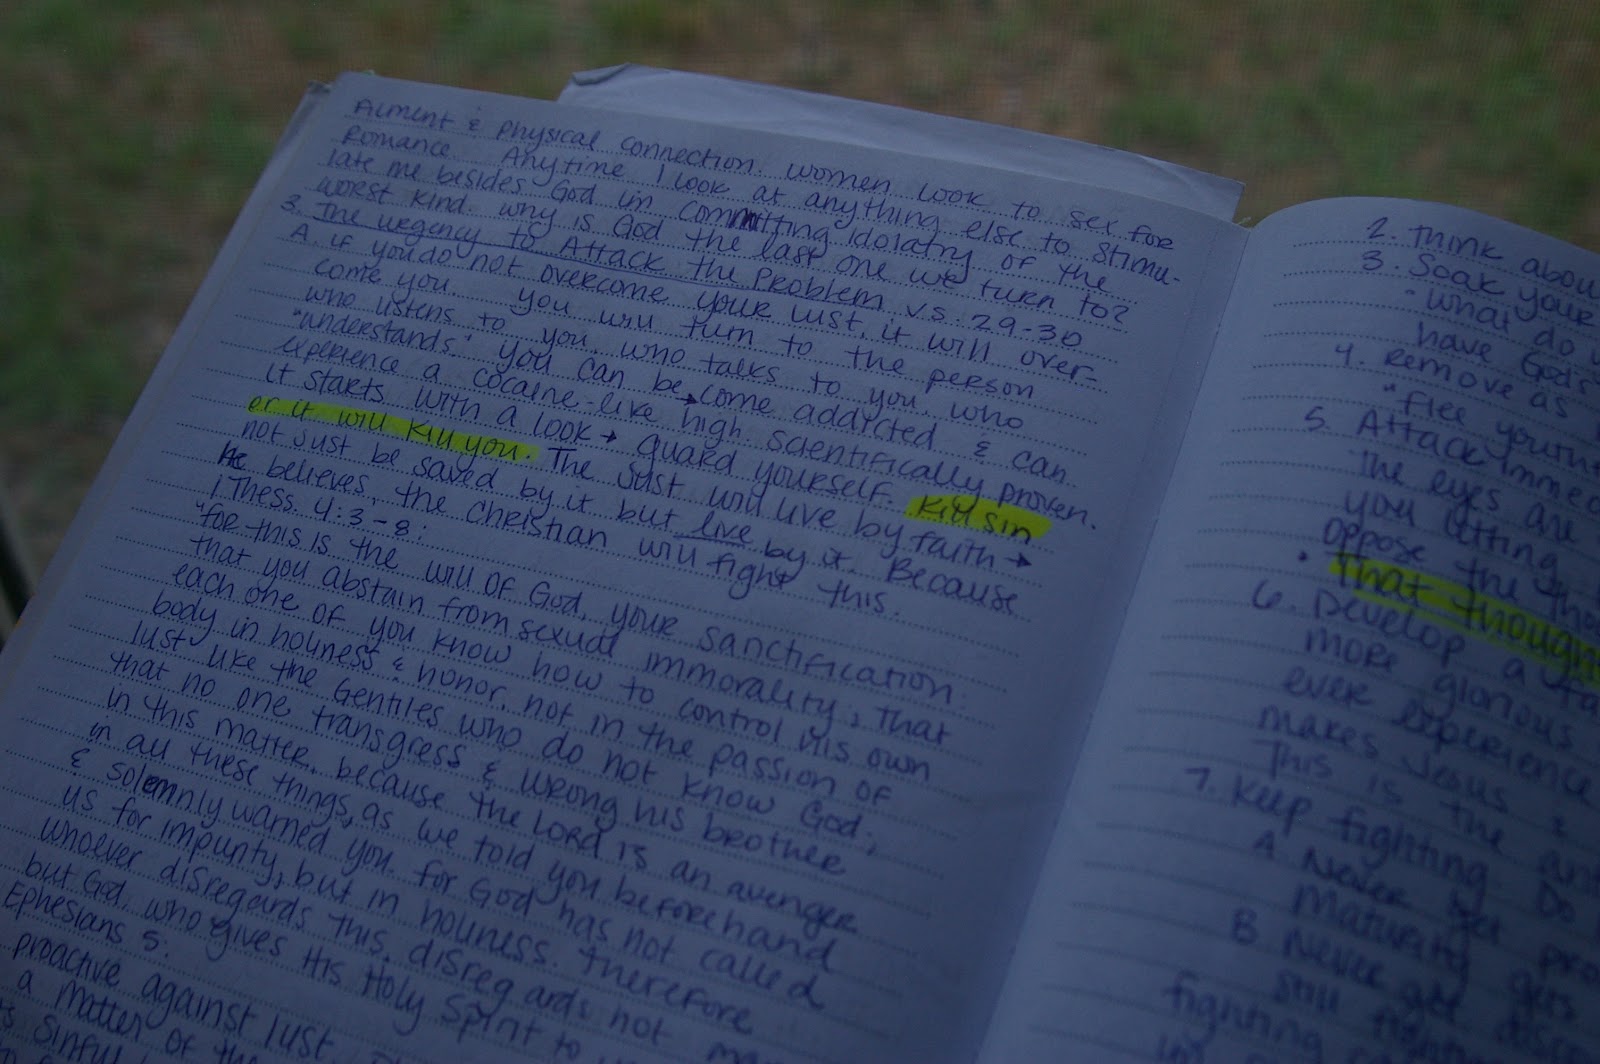 Ailment & physical connection. Women look to sex for
Romance. Anytime I look at anything else to stimu-
late me besides God im committing idolatry of the
worst kind. Why is God the last one we turn to?
3. The urgency to Attack the Problem vs. 29-30
A. if you do not overcome your lust, it will over-
come you. You will turn to the person
who listens to you, who talks to you, who
"understands." You can become addicted & can
experience a cocaine-like high. Scientifically proven.
it starts with a look → guard yourself. Kill sin
or it will kill you. The Just will live by faith →
not just be saved by it but live by it. Because
He believes, the Christian will fight this.
1 Thess. 4:3-8:
"for this is the will of God, your sanctification:
that you abstain from sexual immorality; that
each one of you know how to control his own
body in holiness & honor, not in the passion of
lust like the Gentiles who do not know God;
that no one transgress & wrong his brother
in this matter, because the LORD is an avenger
in all these things, as we told you beforehand
& solemnly warned you. For God has not called
us for impurity, but in holiness. Therefore
whoever disregards this, disregards not man
but God, who gives His Holy Spirit to
Ephesians 5:
proactive against lust.
a matter of the
sinful
2. Think abou
3. Soak your
"what do
have God's
4. Remove as
"flee youth
5. Attack immed
the eyes are
you letting
oppose the tho
• That though
6. Develop a
more glorious
ever experience
makes Jesus
This is the
7. Keep fighting. Do
A. Never get
Maturity gets
B. Never get
still
fighting